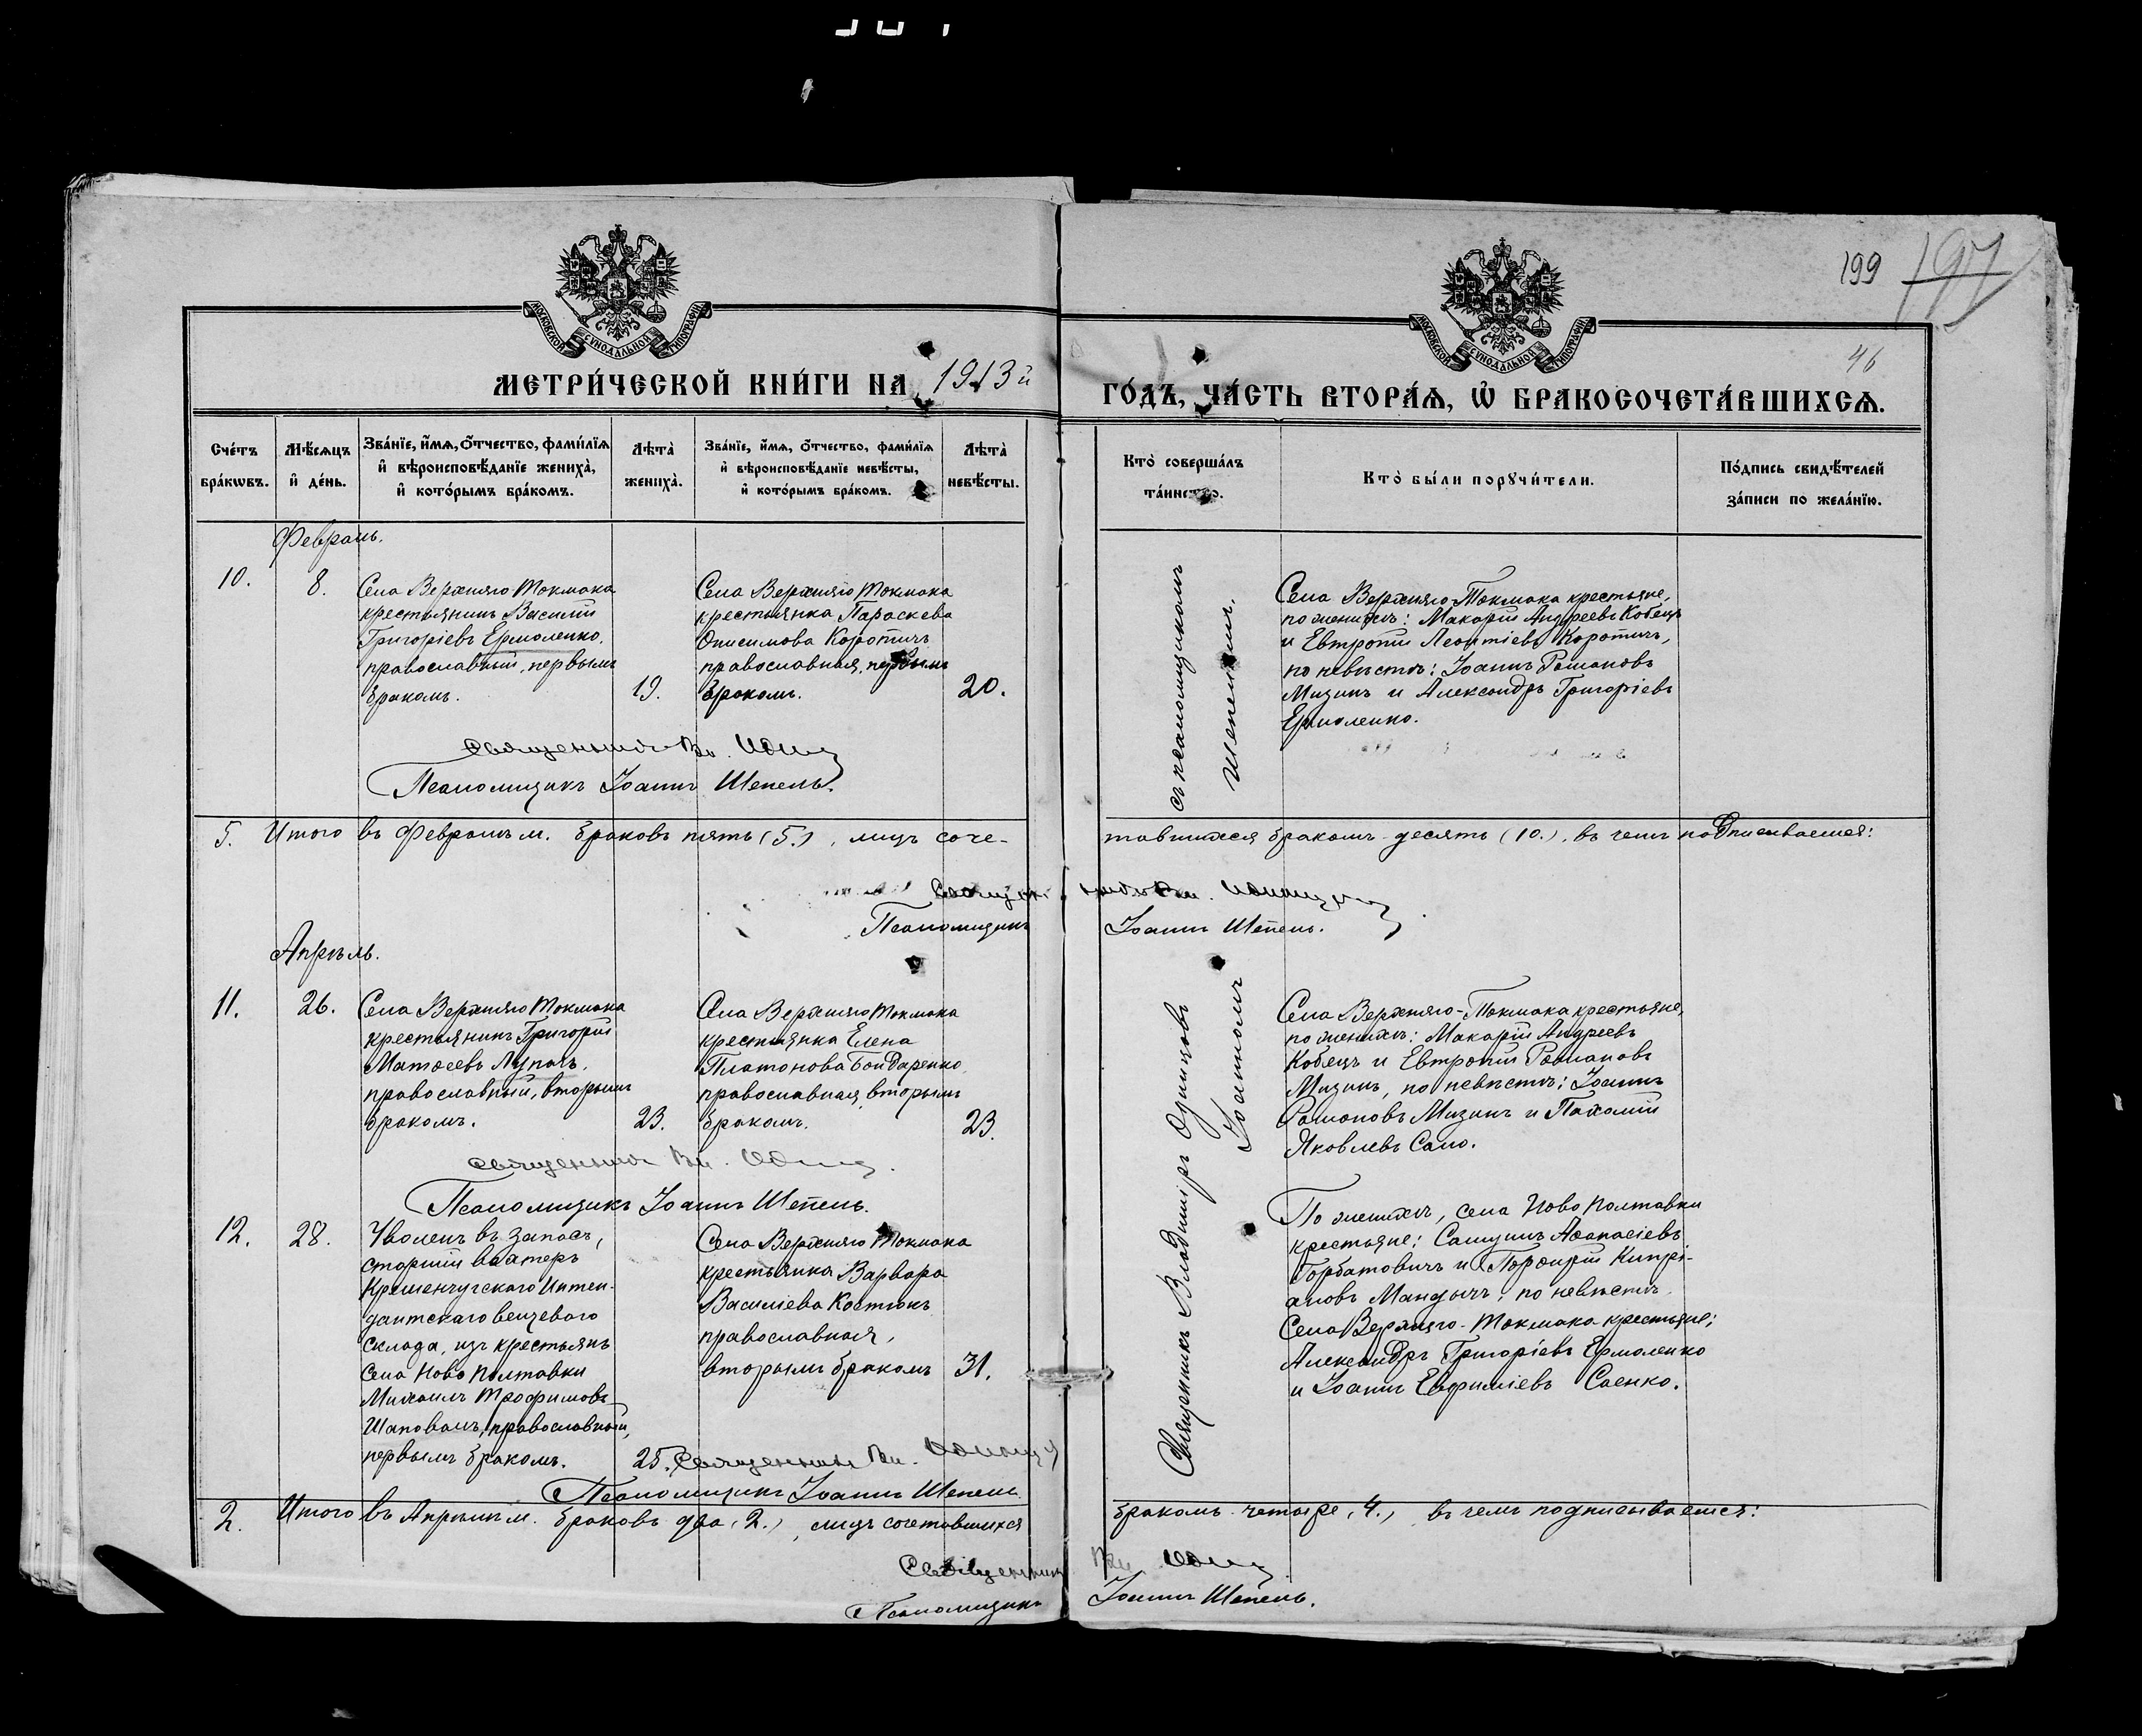 199 197
46
МОСКОВСКОЙ СѴНОДАЛЬНОЙ ТИПОГРАФІИ
МОСКОВСКОЙ СѴНОДАЛЬНОЙ ТИПОГРАФІИ
МЕТРИ́ЧЕСКОЙ КНИ́ГИ НА 1913й ГО́ДЪ, ЧА́СТЬ ВТОРА́Ѧ, Ѡ҆ БРАКОСОЧЕТА́ВШИХСѦ.
Сче́тъ бра́кѡвъ.
Мѣ́сяцъ и҆ де́нь.
Зва́нїе, и҆́мѧ, ѻ҆́тчество, фами́лїѧ
и҆ вѣроисповѣ́данїе жениха̀,
и҆ кото́рымъ бра́комъ.
Лѣта̀ жениха̀.
Зва́нїе, и҆́мѧ, ѻ҆́тчество, фами́лїѧ
и҆ вѣроисповѣ́данїе невѣ́сты,
и҆ кото́рымъ бра́комъ.
Лѣта̀ невѣ́сты.
Кто̀ соверша́лъ
та́инство.
Кто̀ бы́ли порꙋчи́тели.
По́дпись свидѣ́телей
за́писи по жела́нїю.
Февраль.
10.
8.
Села Верхняго Токмака
крестьянинъ Василій
Григоріевъ Ермоленко,
православный, первымъ
бракомъ.
19.
Села Верхняго Токмака
крестьянка Параскева
Онисимова Коротичъ
православная, первымъ
бракомъ.
20.
съ псаломщикомъ
Шепелемъ.
Села Верхняго-Токмака крестьяне,
по женихѣ: Макарій Андреевъ Кобецъ
и Евтропій Леонтіевъ Коротичъ,
по невѣстѣ: Іоаннъ Романовъ
Мизинъ и Александръ Григоріевъ
Ермоленко.
Священникъ Вл.
Псаломщикъ Іоаннъ Шепель.
5. Итого въ Февралѣ м. браковъ пять (5.), лицъ соче-
тавшихся бракомъ десять (10.), въ чемъ подписываемся:
Священникъ Вл.
Псаломщикъ Іоаннъ Шепель.
Апрѣль.
11.
26.
Села Верхняго Токмака
крестьянинъ Григорій
Матѳеевъ Лупачъ,
православный, вторымъ
бракомъ.
23.
Села Верхняго Токмака
крестьянка Елена
Платонова Бондаренко
православная, вторымъ
бракомъ.
23.
Священникъ Владиміръ Одинцовъ
Іоанномъ
Села Верхняго-Токмака крестьяне,
по женихѣ: Макарій Андреевъ
Кобецъ и Евтропій Романовъ
Мизинъ, по невѣстѣ: Іоаннъ
Романовъ Мизинъ и Пахомій
Яковлевъ Сало.
Священникъ Вл.
Псаломщикъ Іоаннъ Шепель.
12.
28.
Уволенъ въ запасъ,
старшій вахтеръ
Кременчугскаго Интен-
дантскаго вещеваго
склада, изъ крестьянъ
села Ново Полтавки
Михаилъ Трофимовъ
Шаповалъ, православный,
первымъ бракомъ.
25.
Села Верхняго Токмака
крестьянка Варвара
Василіева Костюкъ
православная,
вторымъ бракомъ
31.
По женихѣ, села Ново Полтавки
крестьяне: Самуилъ Аѳанасіевъ
Горбатовичъ и Порфирій Кипрі-
ановъ Мандычъ; по невѣстѣ,
Села Верхняго-Токмака крестьяне;
Александръ Григоріевъ Ермоленко
и Іоаннъ Евфиміевъ Саенко.
Священникъ Вл.
Псаломщикъ Іоаннъ Шепель
2. Итого въ Апрѣлѣ м. браковъ два (2.), лицъ сочетавшихся
бракомъ четыре (4.), въ чемъ подписываемся:
Священникъ Вл.
Псаломщикъ Іоаннъ Шепель.